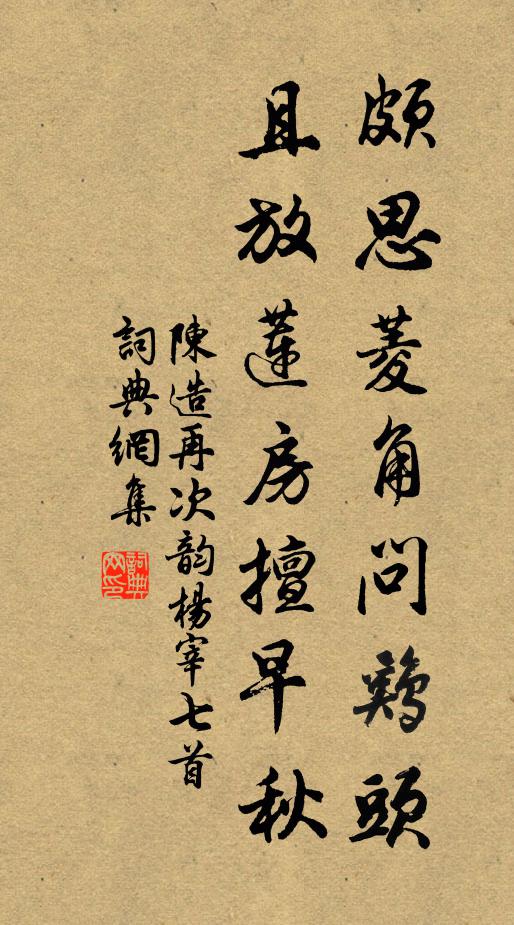 頗思菱角問鷄頭
且放蓮房擅早秋
陳造再次韵楊宰七首
詞典網集
詞典網印